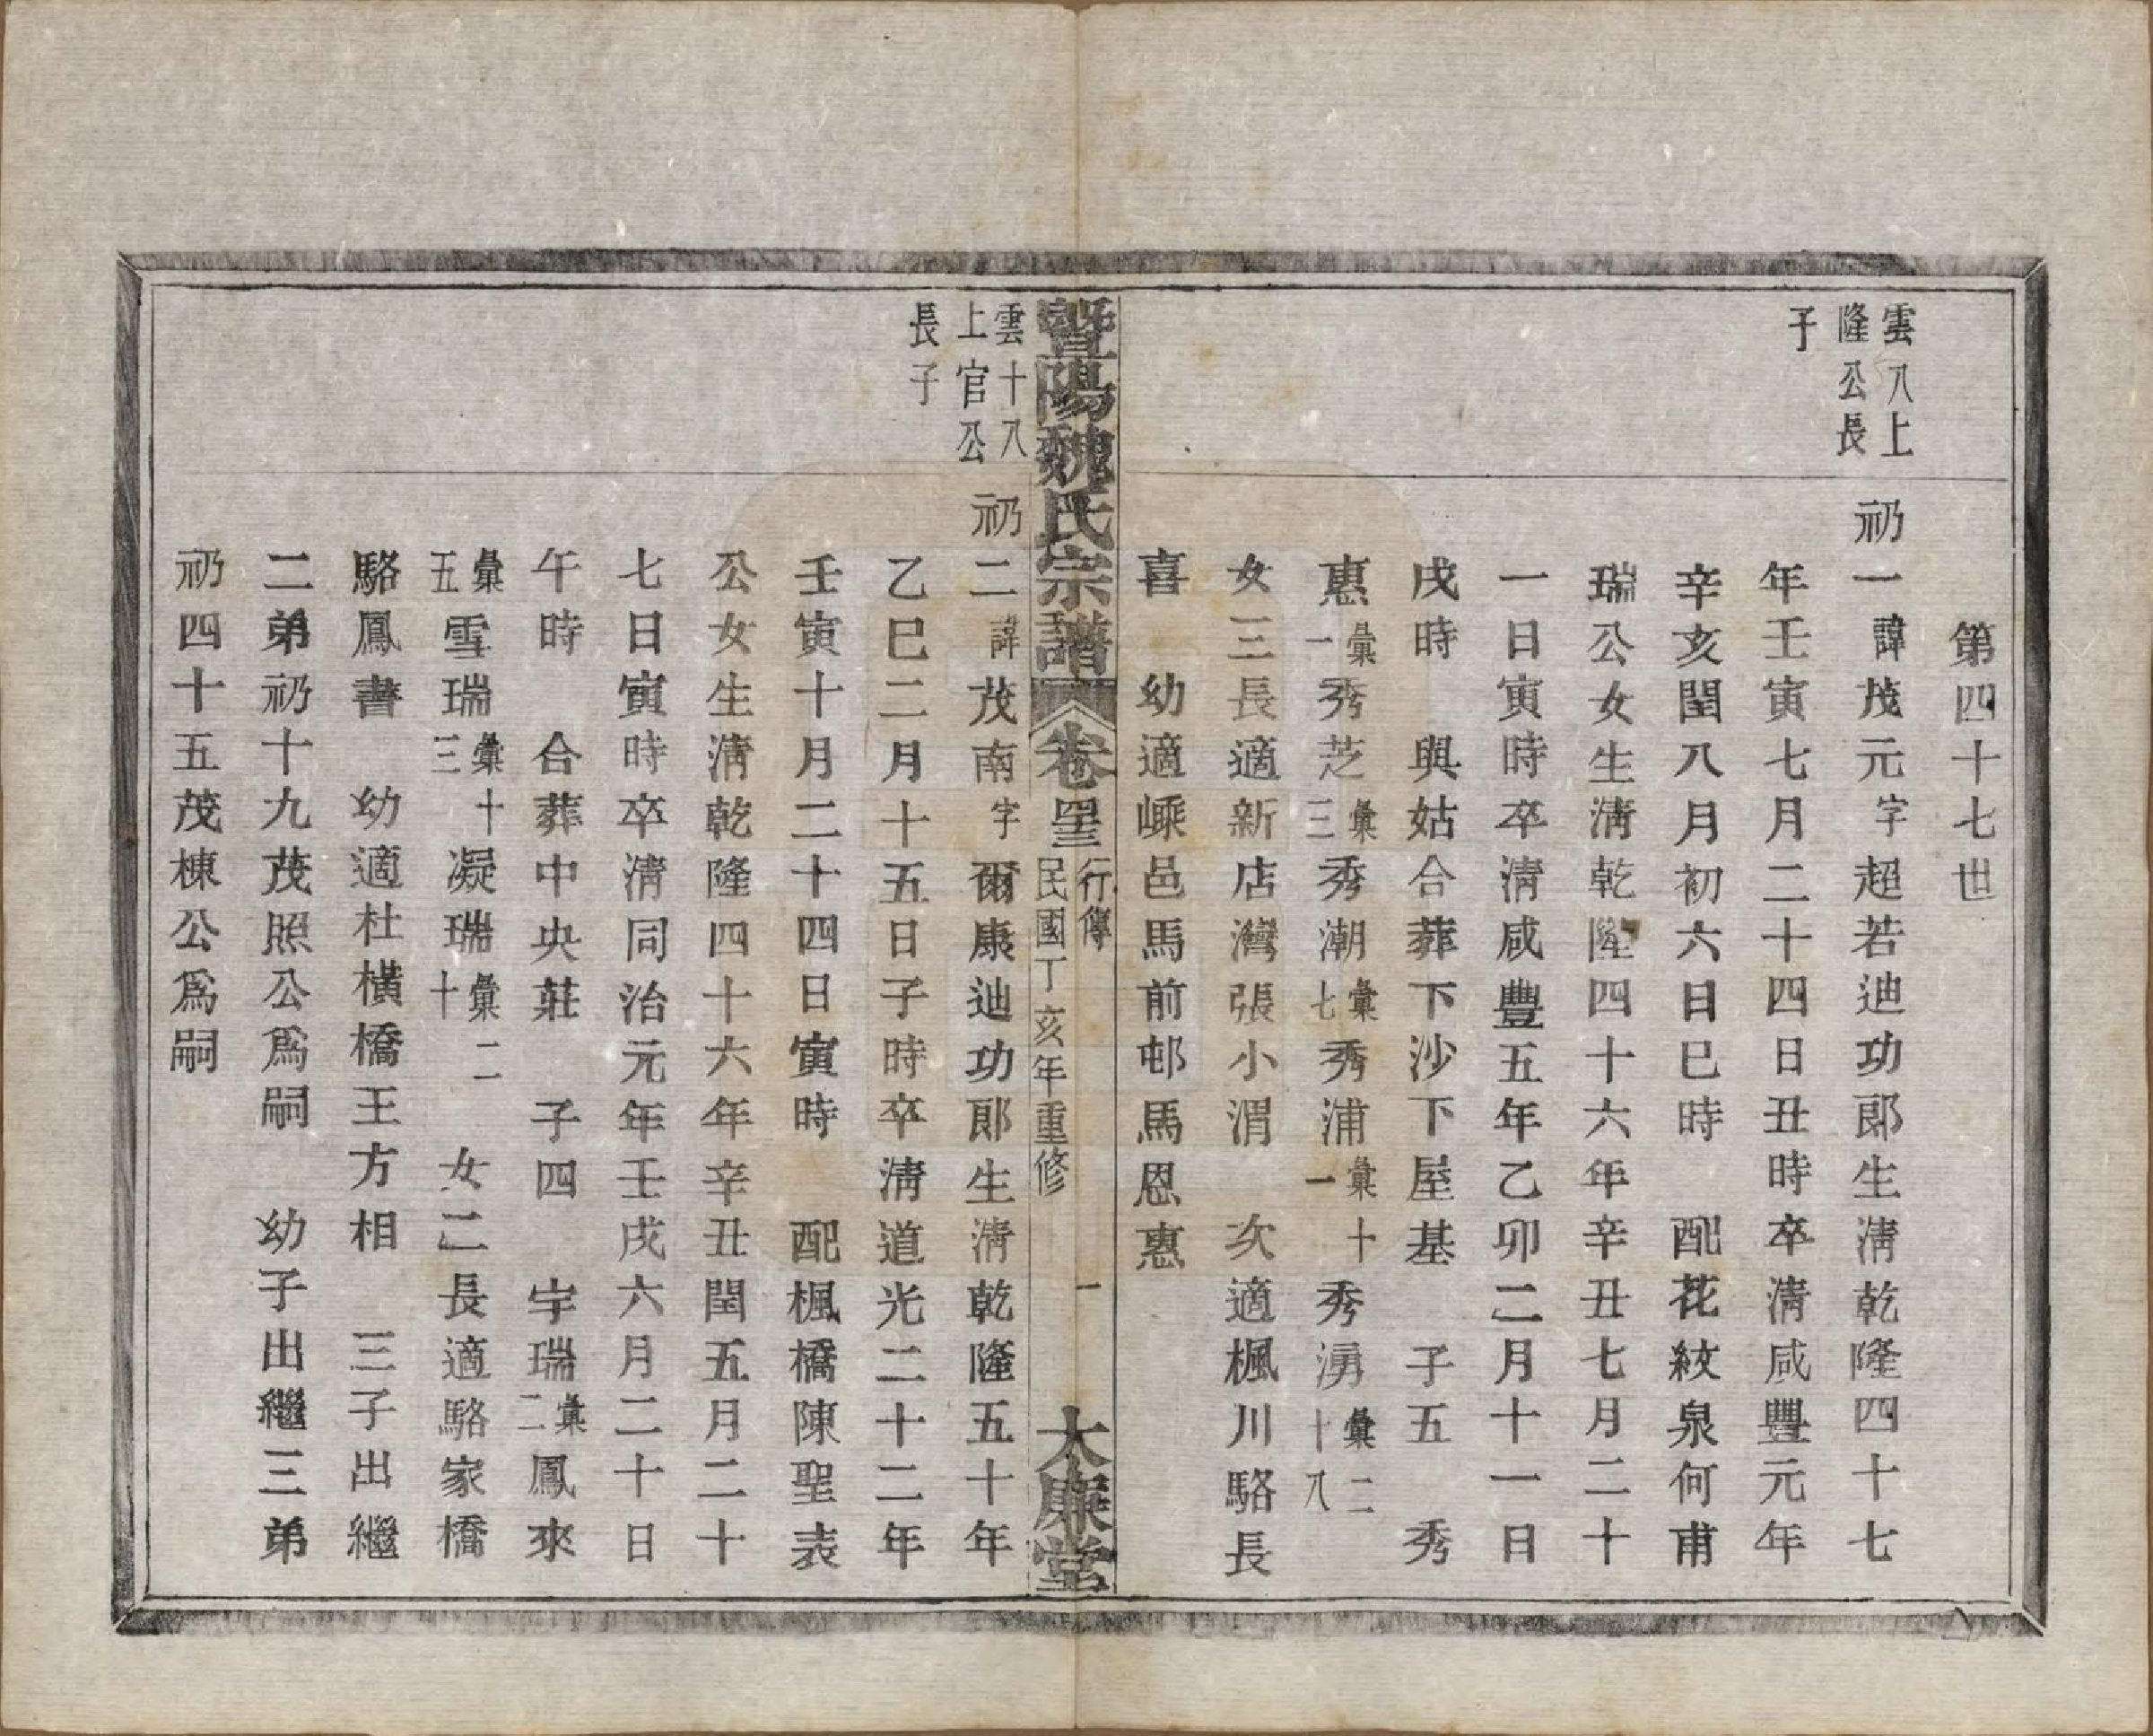 第四十七世
雲八上
隆公長
子
礽一諱茂元字超若迪功郎生清乾隆四十七
年壬寅七月二十四日丑時卒清咸豐元年
辛亥閏八月初六日巳時　配花紋泉何甫
瑞公女生清乾隆四十六年辛丑七月二十
一日寅時卒清咸豐五年乙卯二月十一日
戌時　與姑合葬下沙下屋基　子五　秀
惠彙一秀芝彙三秀潮彙七秀浦彙十一秀湧彙二十八
女三長適新店灣張小渭　次適楓川駱長
喜　幼適嵊邑馬前邨馬恩惠
暨陽魏氏宗譜　卷四十三　行傳　民國丁亥年重修　一　大廉堂
雲十八
上官公
長子
礽二諱茂南字爾康迪功郎生清乾隆五十年
乙巳二月十五日子時卒清道光二十二年
壬寅十月二十四日寅時　配楓橋陳聖表
公女生清乾隆四十六年辛丑閏五月二十
七日寅時卒清同治元年壬戌六月二十日
午時　合葬中央莊　子四　宇瑞彙二鳳來
彙五雪瑞彙十三凝瑞彙二十　女二長適駱家橋
駱鳳書　幼適杜橫橋王方相　三子出繼
二弟礽十九茂照公爲嗣　幼子出繼三弟
礽四十五茂棟公爲嗣